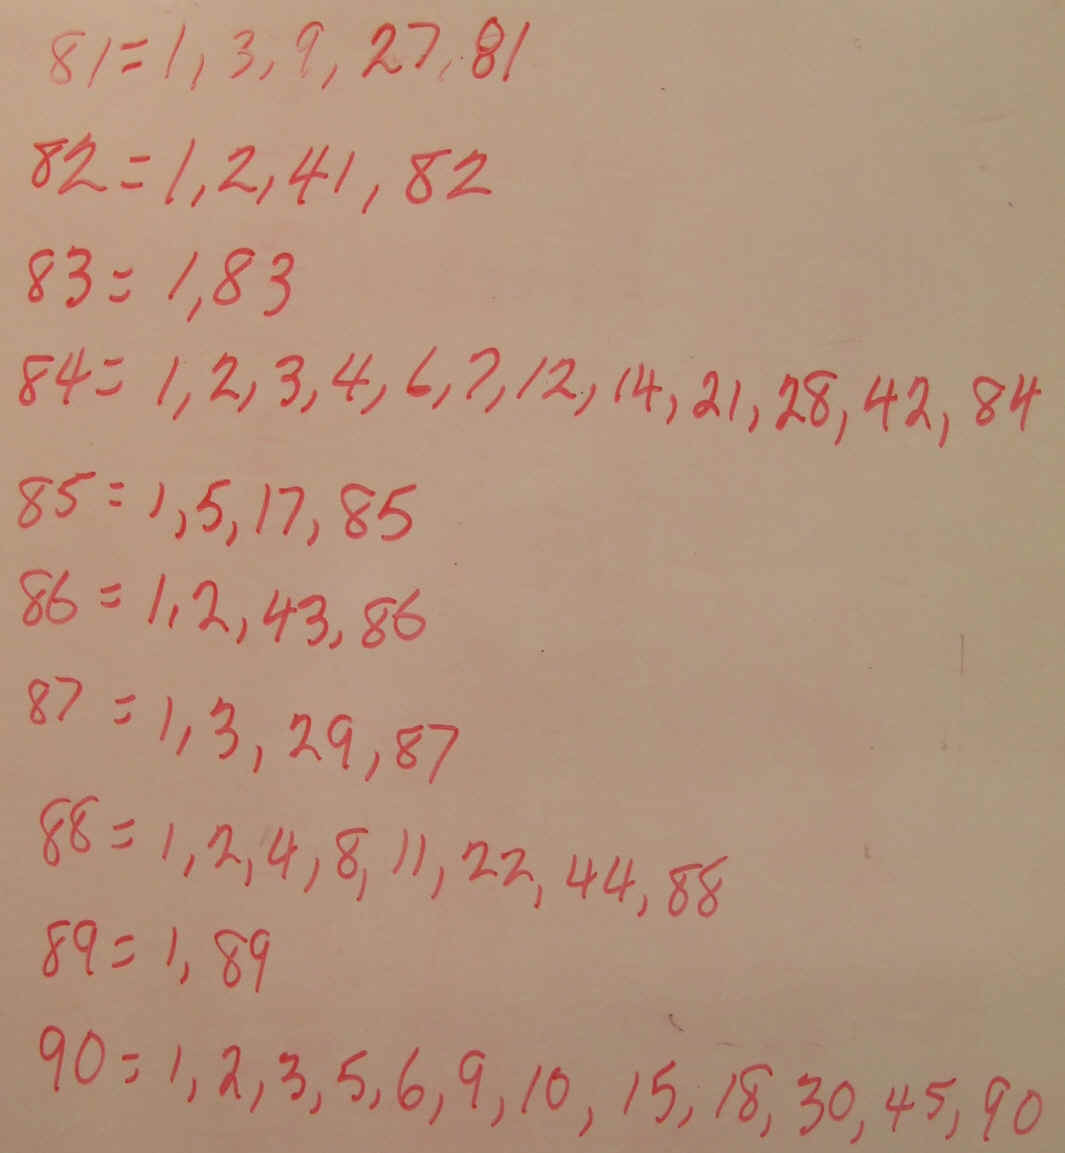 81=1, 3, 9, 27, 81
82=1, 2, 41, 82
83= 1, 83
84= 1, 2, 3, 4, 6, 7, 12, 14, 21, 28, 42, 84
85= 1, 5, 17, 85
86= 1, 2, 43, 86
87 = 1, 3, 29, 87
88= 1, 2, 4, 8, 11, 22, 44, 88
89= 1, 89
90= 1, 2, 3, 5, 6, 9, 10, 15, 18, 30, 45, 90